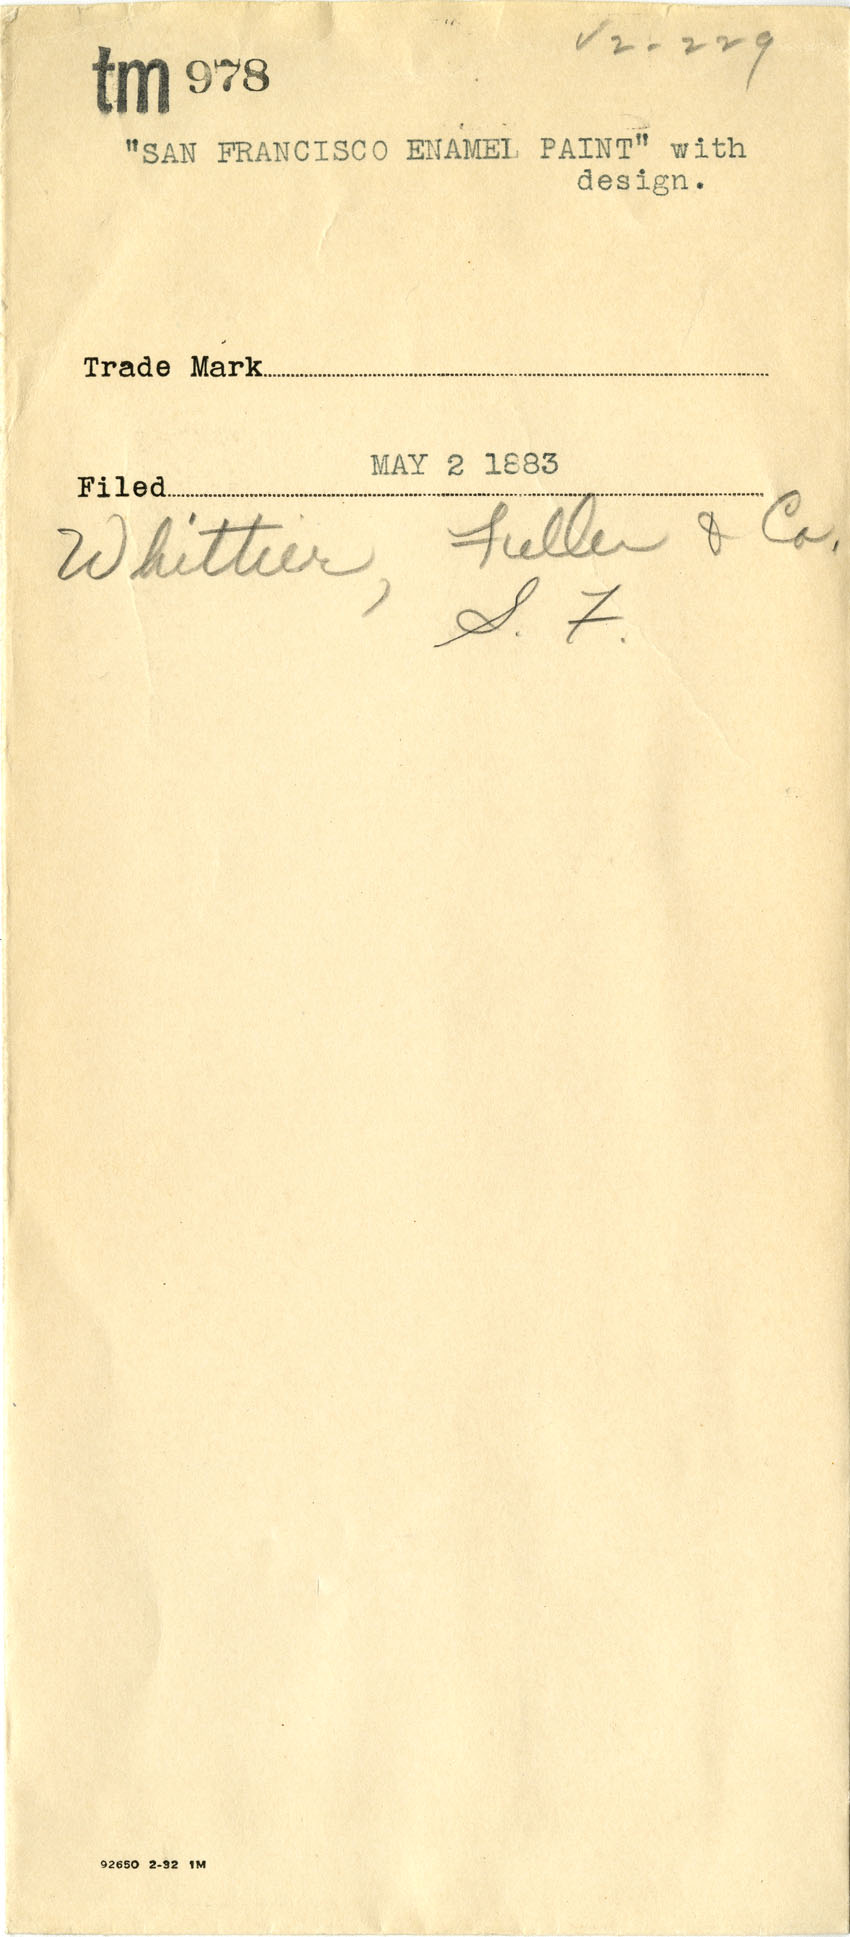 V2-229
tm 978
"SAN FRANCISCO ENAMEL PAINT" with
design.
Trade Mark
MAY 2 1883
Filed
Whittier, Fuller & Co.
S. F.
92650 2-32 1M